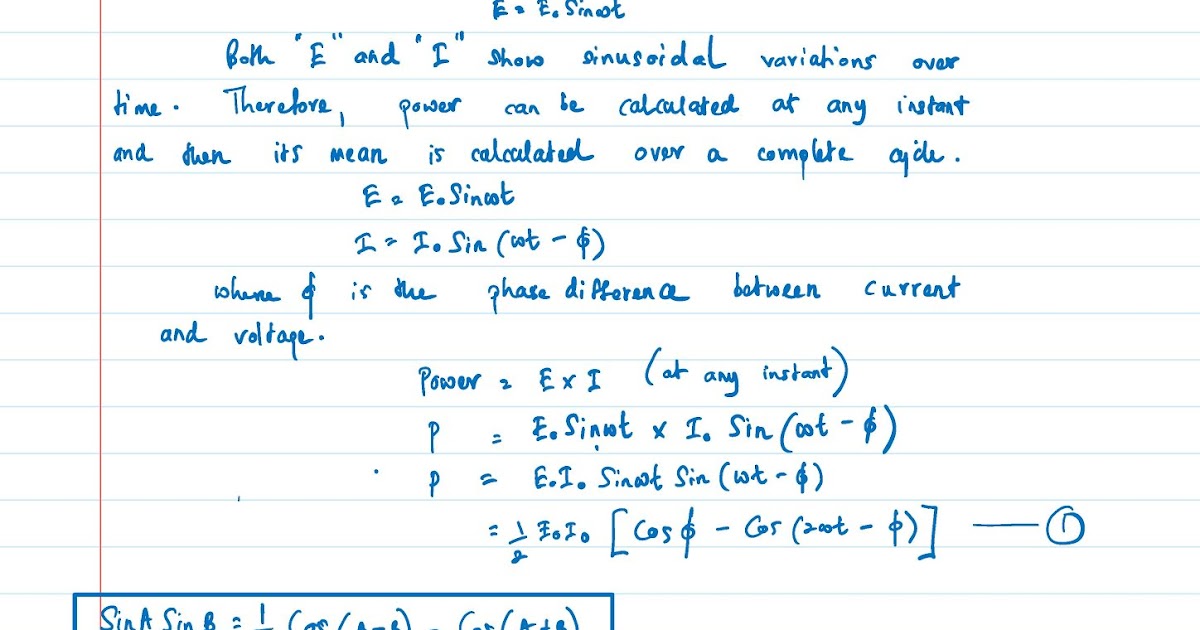 E = E₀ Sinωt
Both "E" and "I" show sinusoidal variations over
time. Therefore, power can be calculated at any instant
and then its mean is calculated over a complete cycle.
E = E₀ Sinωt
I = I₀ Sin (ωt - ϕ)
where ϕ is the phase difference between current
and voltage.
Power = E × I (at any instant)
P = E₀ Sinωt × I₀ Sin (ωt - ϕ)
P = E₀I₀ Sinωt Sin (ωt - ϕ)
= 1/2 E₀I₀ [Cos ϕ - Cos (2ωt - ϕ)] —— ①
SinA SinB = 1/2 Cos (A-B) - Cos (A+B)